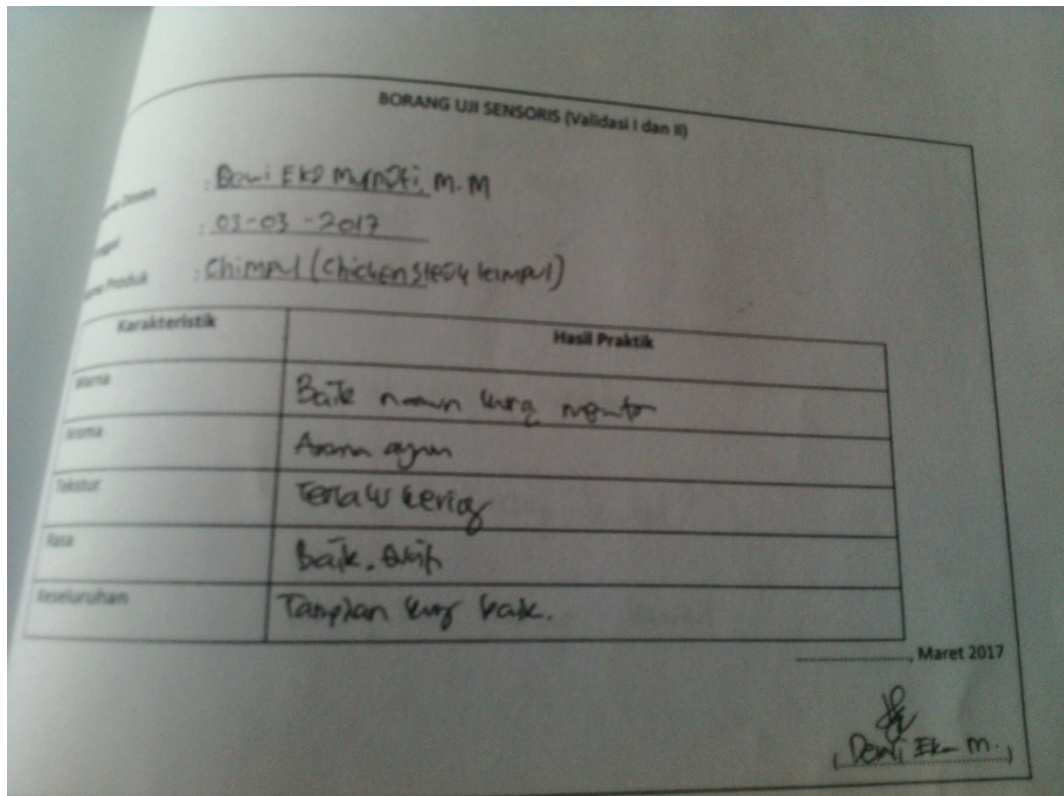 BORANG UJI SENSORIS (Validasi I dan II)
Dosen : Dewi Eka Murniati, M.M
: 03-03-2017
Produk : Chimpul (Chicken steak kimpul)
Karakteristik Hasil Praktik
Warna Baik namun kurg
Aroma Aroma ayam
Tekstur Terlalu kering
Rasa Baik.
Keseluruhan Tampilan kurg baik.
...................., Maret 2017
(Dewi Eka M.)